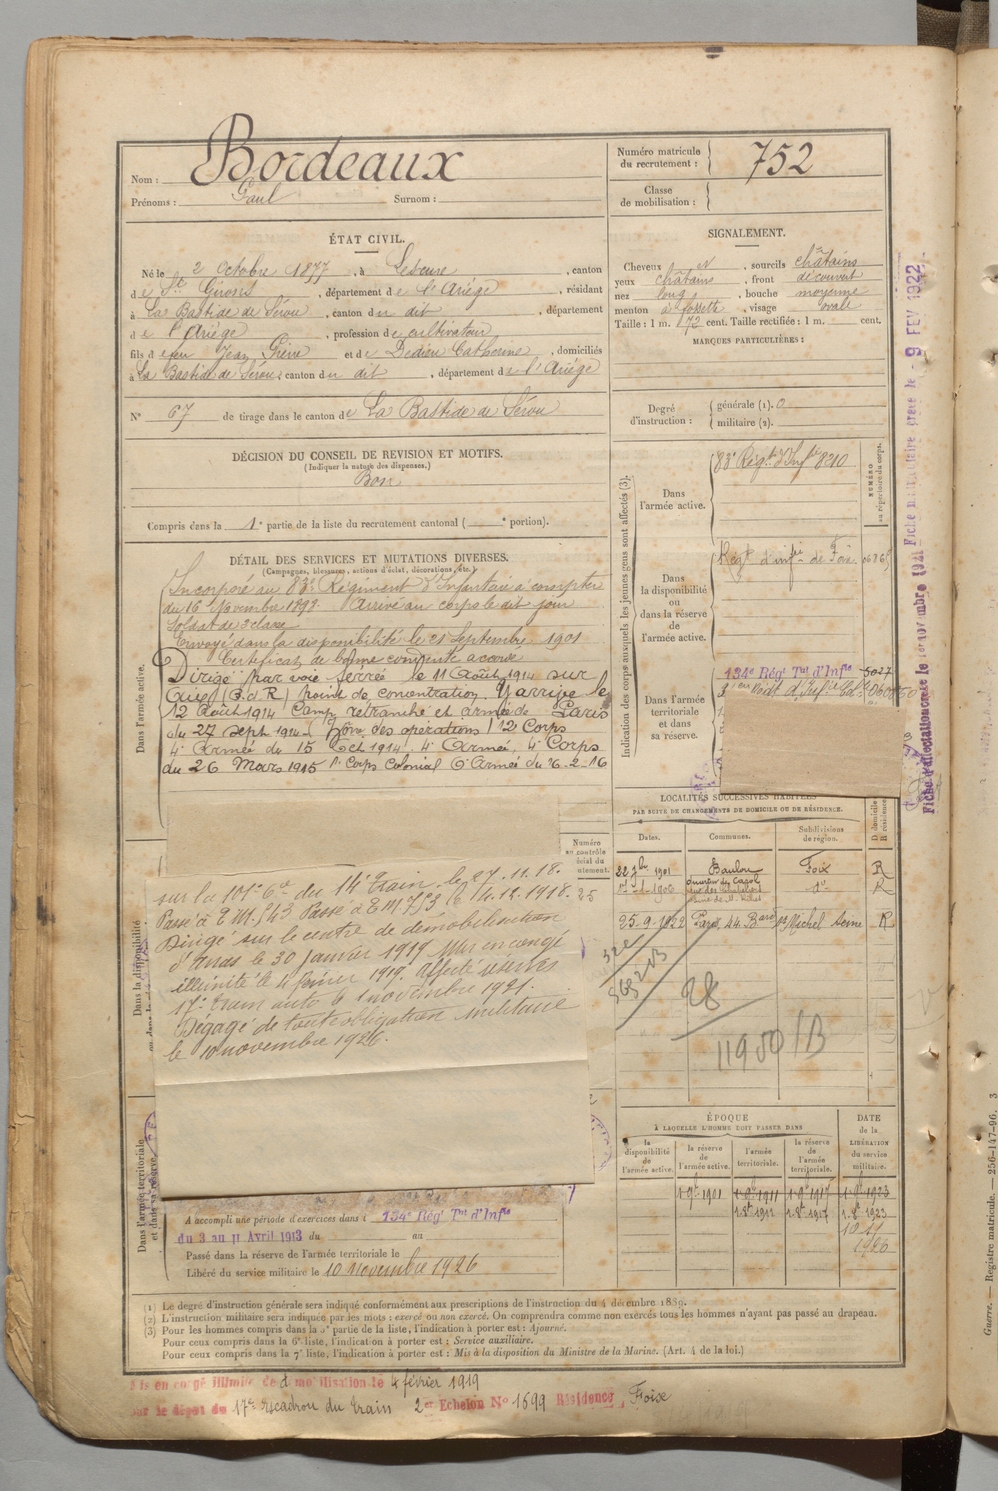 Nom : Bordeaux
Prénoms : Paul Surnom :
Numéro matricule du recrutement : 752
Classe de mobilisation :
ÉTAT CIVIL.
Né le 2 Octobre 1877, à Lescure, canton
de St Girons, département de l'Ariège, résidant
à La Bastide de Sérou, canton du dit, département
de l'Ariège, profession de cultivateur
fils de feu Jean Pierre et de Dedieu Catherine, domiciliés
à La Bastide de Sérou, canton du dit, département de l'Ariège
N° 67 de tirage dans le canton de La Bastide de Sérou
SIGNALEMENT.
Cheveux N, sourcils châtains
yeux châtains, front découvert
nez long, bouche moyenne
menton à fossette, visage ovale
Taille : 1 m. 672 cent. Taille rectifiée : 1 m. cent.
MARQUES PARTICULIÈRES :
Degré d'instruction : générale (1). 0
militaire (2).
DÉCISION DU CONSEIL DE REVISION ET MOTIFS.
(Indiquer la nature des dispenses.)
Bon
Compris dans la 1e partie de la liste du recrutement cantonal ( e portion).
DÉTAIL DES SERVICES ET MUTATIONS DIVERSES.
(Campagnes, blessures, actions d'éclat, décorations, etc.)
Dans l'armée active.
Incorporé au 83e Régiment d'Infanterie à compter
du 16 Novembre 1898 Arrivé au corps le dit jour
Soldat de 2e classe
Envoyé dans la disponibilité le 21 Septembre 1901
Certificat de bonne conduite accordé
Dirigé par voie ferrée le 11 Août 1914 sur
(G.d.R) point de concentration. Y arrive le
12 Août 1914 Camp retranché et armée de Paris
du 27 sept 1914 (Zône des opérations) 12 Corps
4e Armée du 15 Oct 1914. 4e Armée, 4e Corps
du 26 Mars 1915 1er Corps Colonial 6e Armée du 26-2-16
Indication des corps auxquels les jeunes gens sont affectés (3).
NUMÉRO au répertoire du corps.
Dans l'armée active.
83e Régt d'Infie 8210
Dans la disponibilité ou dans la réserve de l'armée active.
Régt d'infie de Foix.
Dans l'armée territoriale et dans sa réserve.
134e Régt Tal d'Infie 5027
Fiche d'affectation créée le 1er novembre 1921 Fiche matriculaire créée le - 9 FEV 1922
LOCALITÉS SUCCESSIVES HABITÉES
PAR SUITE DE CHANGEMENTS DE DOMICILE OU DE RÉSIDENCE.
Dates. Communes. Subdivisions de région. D domicile R résidence
22 7bre 1901 Baulou Foix R
1906 do R
25.9.1922 Paris, 44 Bard St Michel Seine R
28
11950/B
Numéro
au contrôle
Dans la disponibilité
sur la 101e Cie du 14e train le 27.11.18.
Passé à T.M. 543 Passé à T.M 753 le 14.12.1918.
Dirigé sur le centre de démobilisation
d'Arras le 30 janvier 1919 Mis en congé
illimité le 4 février 1919. Affecté réserves
17e train auto le 1 novembre 1921.
Dégagé de toute obligation militaire
le 10 novembre 1926.
ÉPOQUE
À LAQUELLE L'HOMME DOIT PASSER DANS
la disponibilité de l'armée active. la réserve de l'armée active. l'armée territoriale. la réserve de l'armée territoriale.
DATE de la LIBÉRATION du service militaire.
1 9bre 1901 1 8bre 1911 1 8bre 1917 1 8bre 1923
1 8bre 1911 1 8bre 1917 1 8bre 1923
10 11
1926
Dans l'armée territoriale et dans sa réserve.
A accompli une période d'exercices dans : 134e Régt Tal d'Infie
du 3 au 11 Avril 1913 du au
Passé dans la réserve de l'armée territoriale le
Libéré du service militaire le 10 novembre 1926
(1) Le degré d'instruction générale sera indiqué conformément aux prescriptions de l'instruction du 4 décembre 1889.
(2) L'instruction militaire sera indiquée par les mots : exercé ou non exercé. On comprendra comme non exercés tous les hommes n'ayant pas passé au drapeau.
(3) Pour les hommes compris dans la 5e partie de la liste, l'indication à porter est : Ajourné.
Pour ceux compris dans la 6e liste, l'indication à porter est : Service auxiliaire.
Pour ceux compris dans la 7e liste, l'indication à porter est : Mis à la disposition du Ministre de la Marine. (Art. 4 de la loi.)
Mis en congé illimité de démobilisation le 4 février 1919
par le dépôt du 17e Escadron du train 2er Echelon N° 1599 Résidence Foix
Guerre. — Registre matricule. — 256-147-96. 3